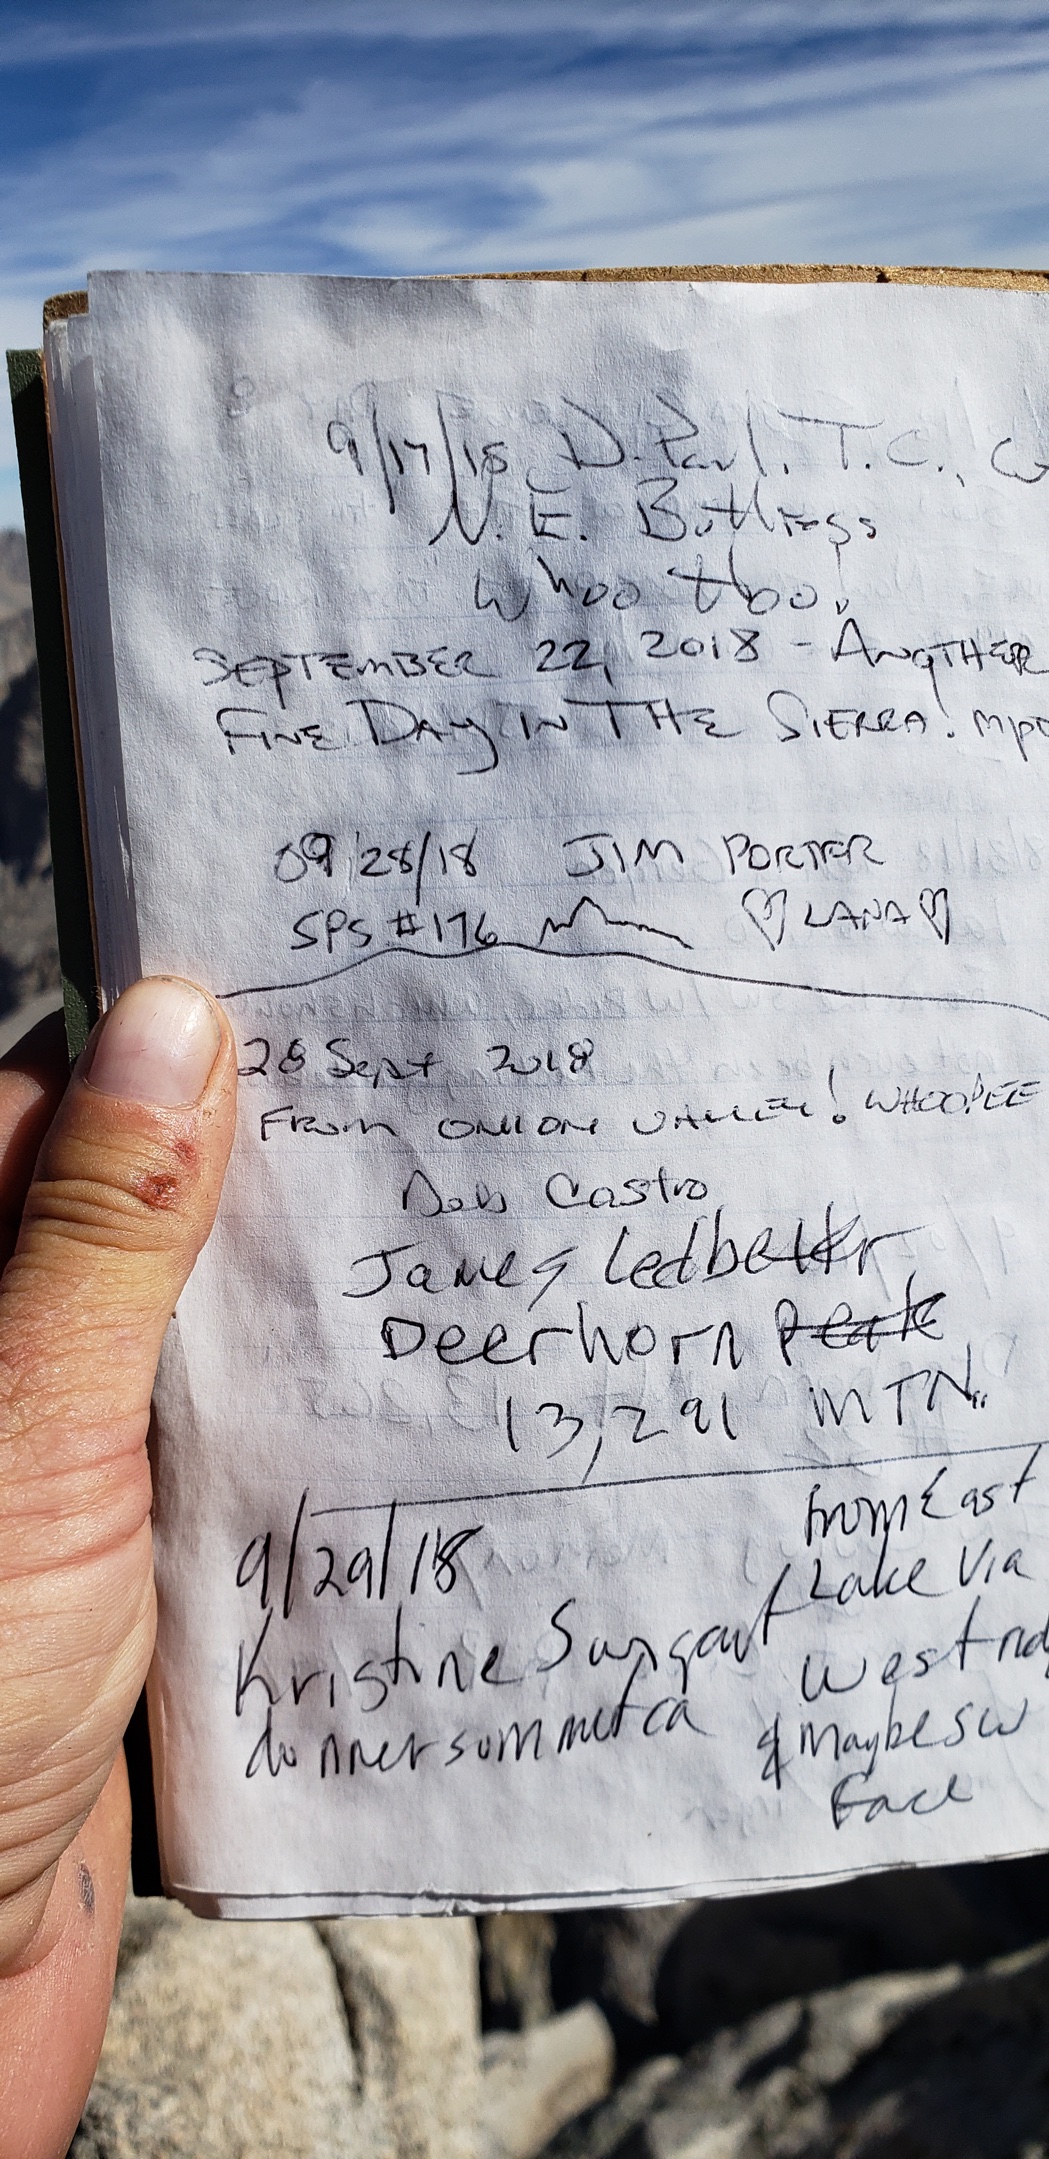 9/17/18 D. Paul, T.C.,
N.E. Buttress
Whoo Hoo!
SEPTEMBER 22, 2018 - ANOTHER
FINE DAY IN THE SIERRA!
09/28/18 JIM PORTER
SPS #176 ♡ LANA ♡
28 Sept 2018
FROM ONION VALLEY! WHOOPEE
Bob Castro
James Ledbetter
Deerhorn Peak
13,291 MTN.
9/29/18
from East
Lake Via
Kristine
West
donnersummitca
& Maybe SW
Face